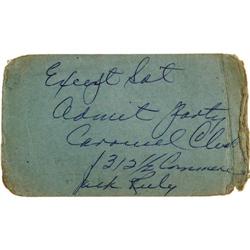 Except Sat
Admit Party
Carousel Club
1312½ Commerce
Jack Ruby